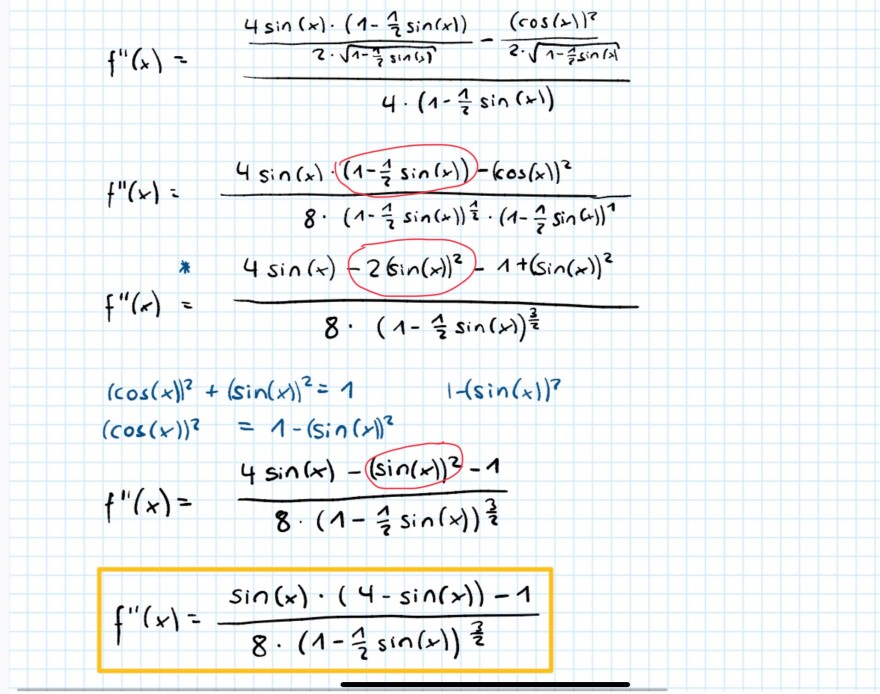 f''(x) = (4 sin(x) · (1 - 1/2 sin(x)) / (2 · √(1 - 1/2 sin(x))) - (cos(x))² / (2 · √(1 - 1/2 sin(x)))) / (4 · (1 - 1/2 sin(x)))
f''(x) = (4 sin(x) · (1 - 1/2 sin(x)) - (cos(x))²) / (8 · (1 - 1/2 sin(x))^(1/2) · (1 - 1/2 sin(x))^1)
*
f''(x) = (4 sin(x) - 2(sin(x))² - 1 + (sin(x))²) / (8 · (1 - 1/2 sin(x))^(3/2))
(cos(x))² + (sin(x))² = 1 |-(sin(x))²
(cos(x))² = 1 - (sin(x))²
f''(x) = (4 sin(x) - (sin(x))² - 1) / (8 · (1 - 1/2 sin(x))^(3/2))
f''(x) = (sin(x) · (4 - sin(x)) - 1) / (8 · (1 - 1/2 sin(x))^(3/2))